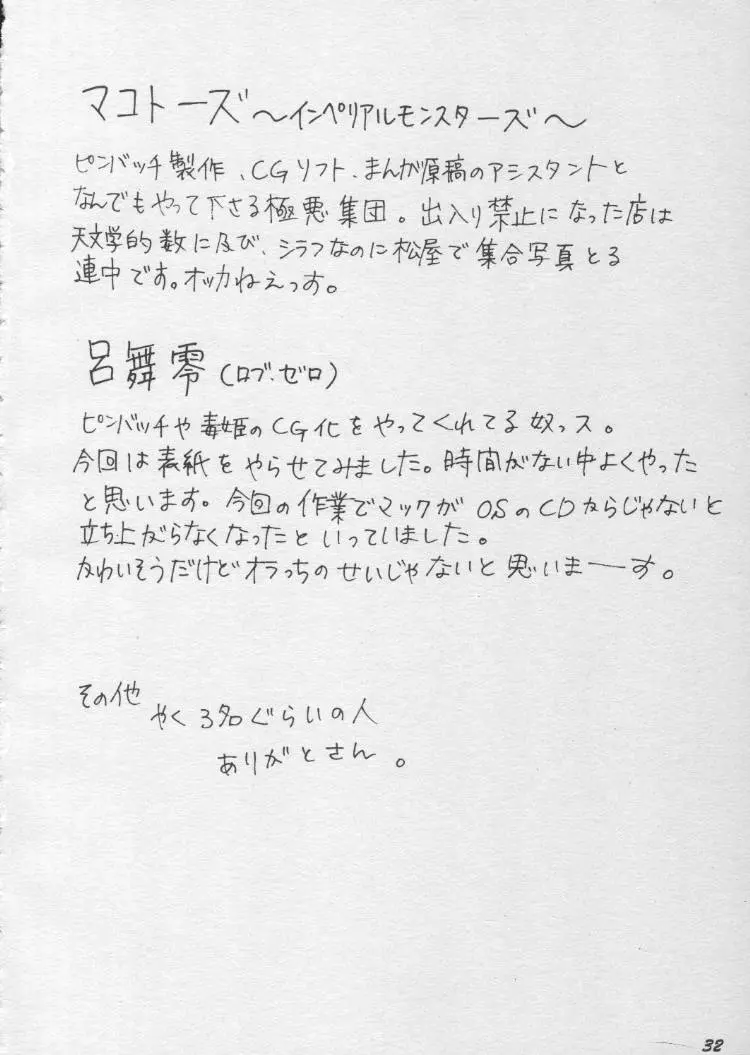 マコトーズ～インペリアルモンスターズ～
ピンバッチ製作、CGソフト、まんが原稿のアシスタントと
なんでもやって下さる極悪集団。出入り禁止になった店は
天文学的数に及び、シラフなのに松屋で集合写真とる
連中です。オッカねえっす。
呂舞零(ロブ・ゼロ)
ピンバッチや毒姫のCG化をやってくれてる奴っス。
今回は表紙をやらせてみました。時間がない中よくやった
と思います。今回の作業でマックがOSのCDからじゃないと
立ち上がらなくなったといっていました。
かわいそうだけどオラっちのせいじゃないと思いまーす。
その他
やく3名ぐらいの人
ありがとさん。
32